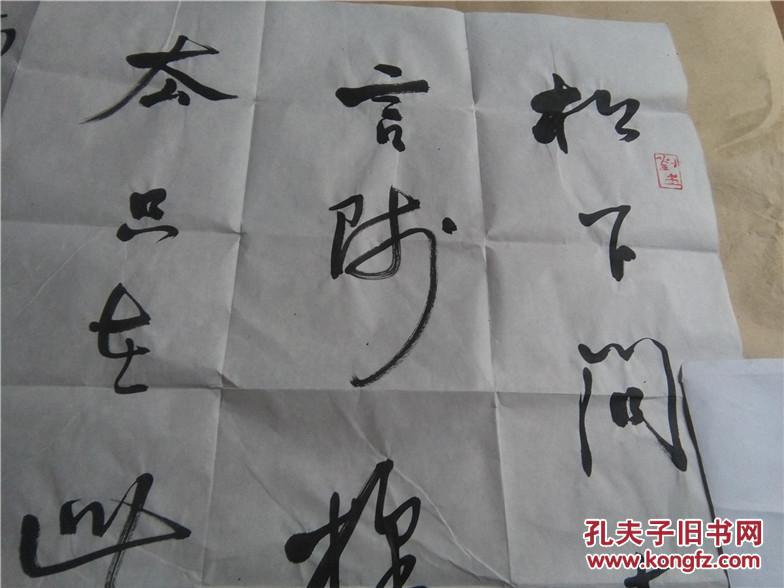 松下问
言师採
去只在此
孔夫子旧书网
www.kongfz.com